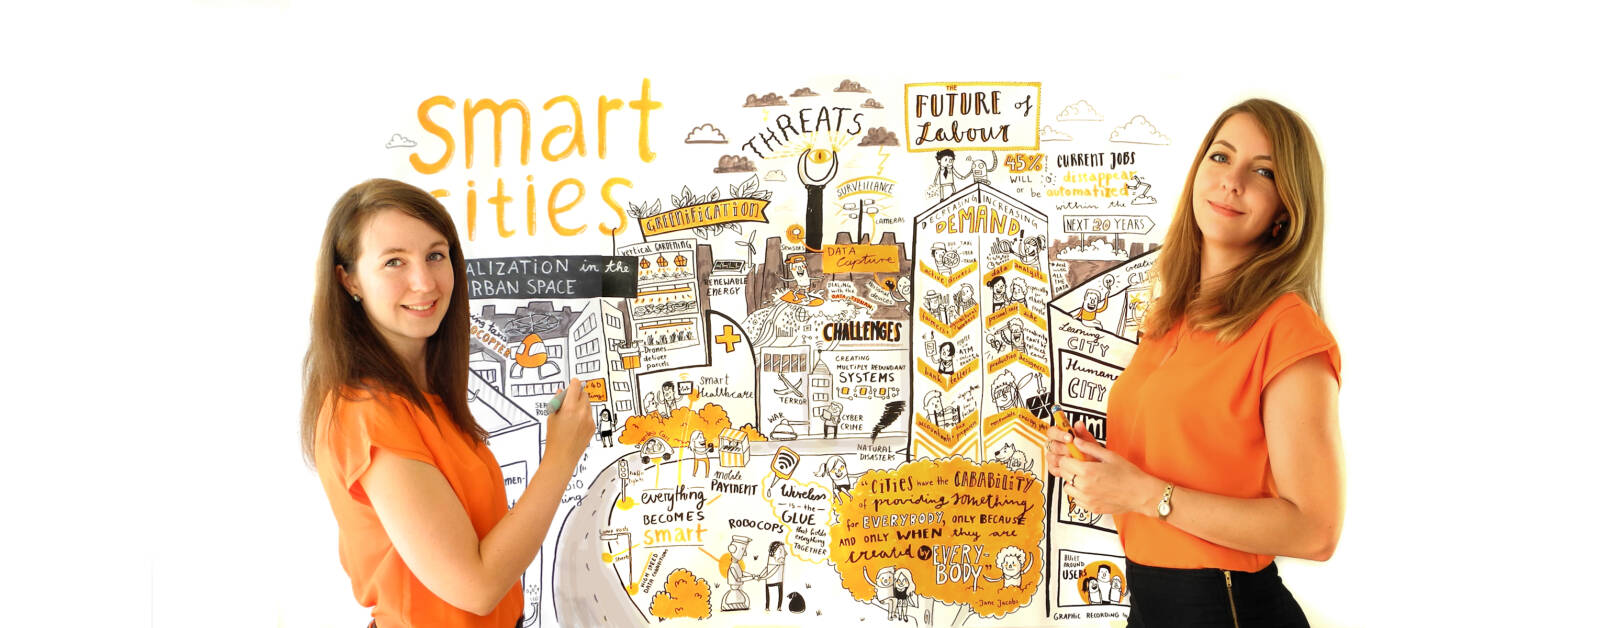 smart
cities
ALIZATION in the
RBAN SPACE
GREENIFICATION
vertical GARDENING
RENEWABLE
ENERGY
Drones
deliver
parcels
smart
Healthcare
THREATS
SURVEILLANCE
CAMERAS
SENSORS
DATA
Capture
DEALING
with the
DATA
CHALLENGES
CREATING
MULTIPLY REDUNDANT
SYSTEMS
TERROR
WAR
CYBER
CRIME
NATURAL
DISASTERS
mobile
PAYMENT
everything
BECOMES
smart
HIGH SPEED
ROBOCOPS
Wireless
-is-the
GLUE
that holds
everything
TOGETHER
THE
FUTURE of
Labour
45%
WILL
or be
CURRENT JOBS
disappear
automatized
within the
NEXT 20 YEARS
DECREASING
INCREASING
DEMAND!
data analysts
farmers
bank tellers
ATM
production designers
accountants
"CITIES have the CABABILITY
of providing something
for EVERYBODY, ONLY BECAUSE
AND ONLY WHEN they are
created by EVERY-
BODY"
-Jane Jacobs
Creative
Learning
CITY
Humane
CITY
BUILT
AROUND
USERS
GRAPHIC RECORDING